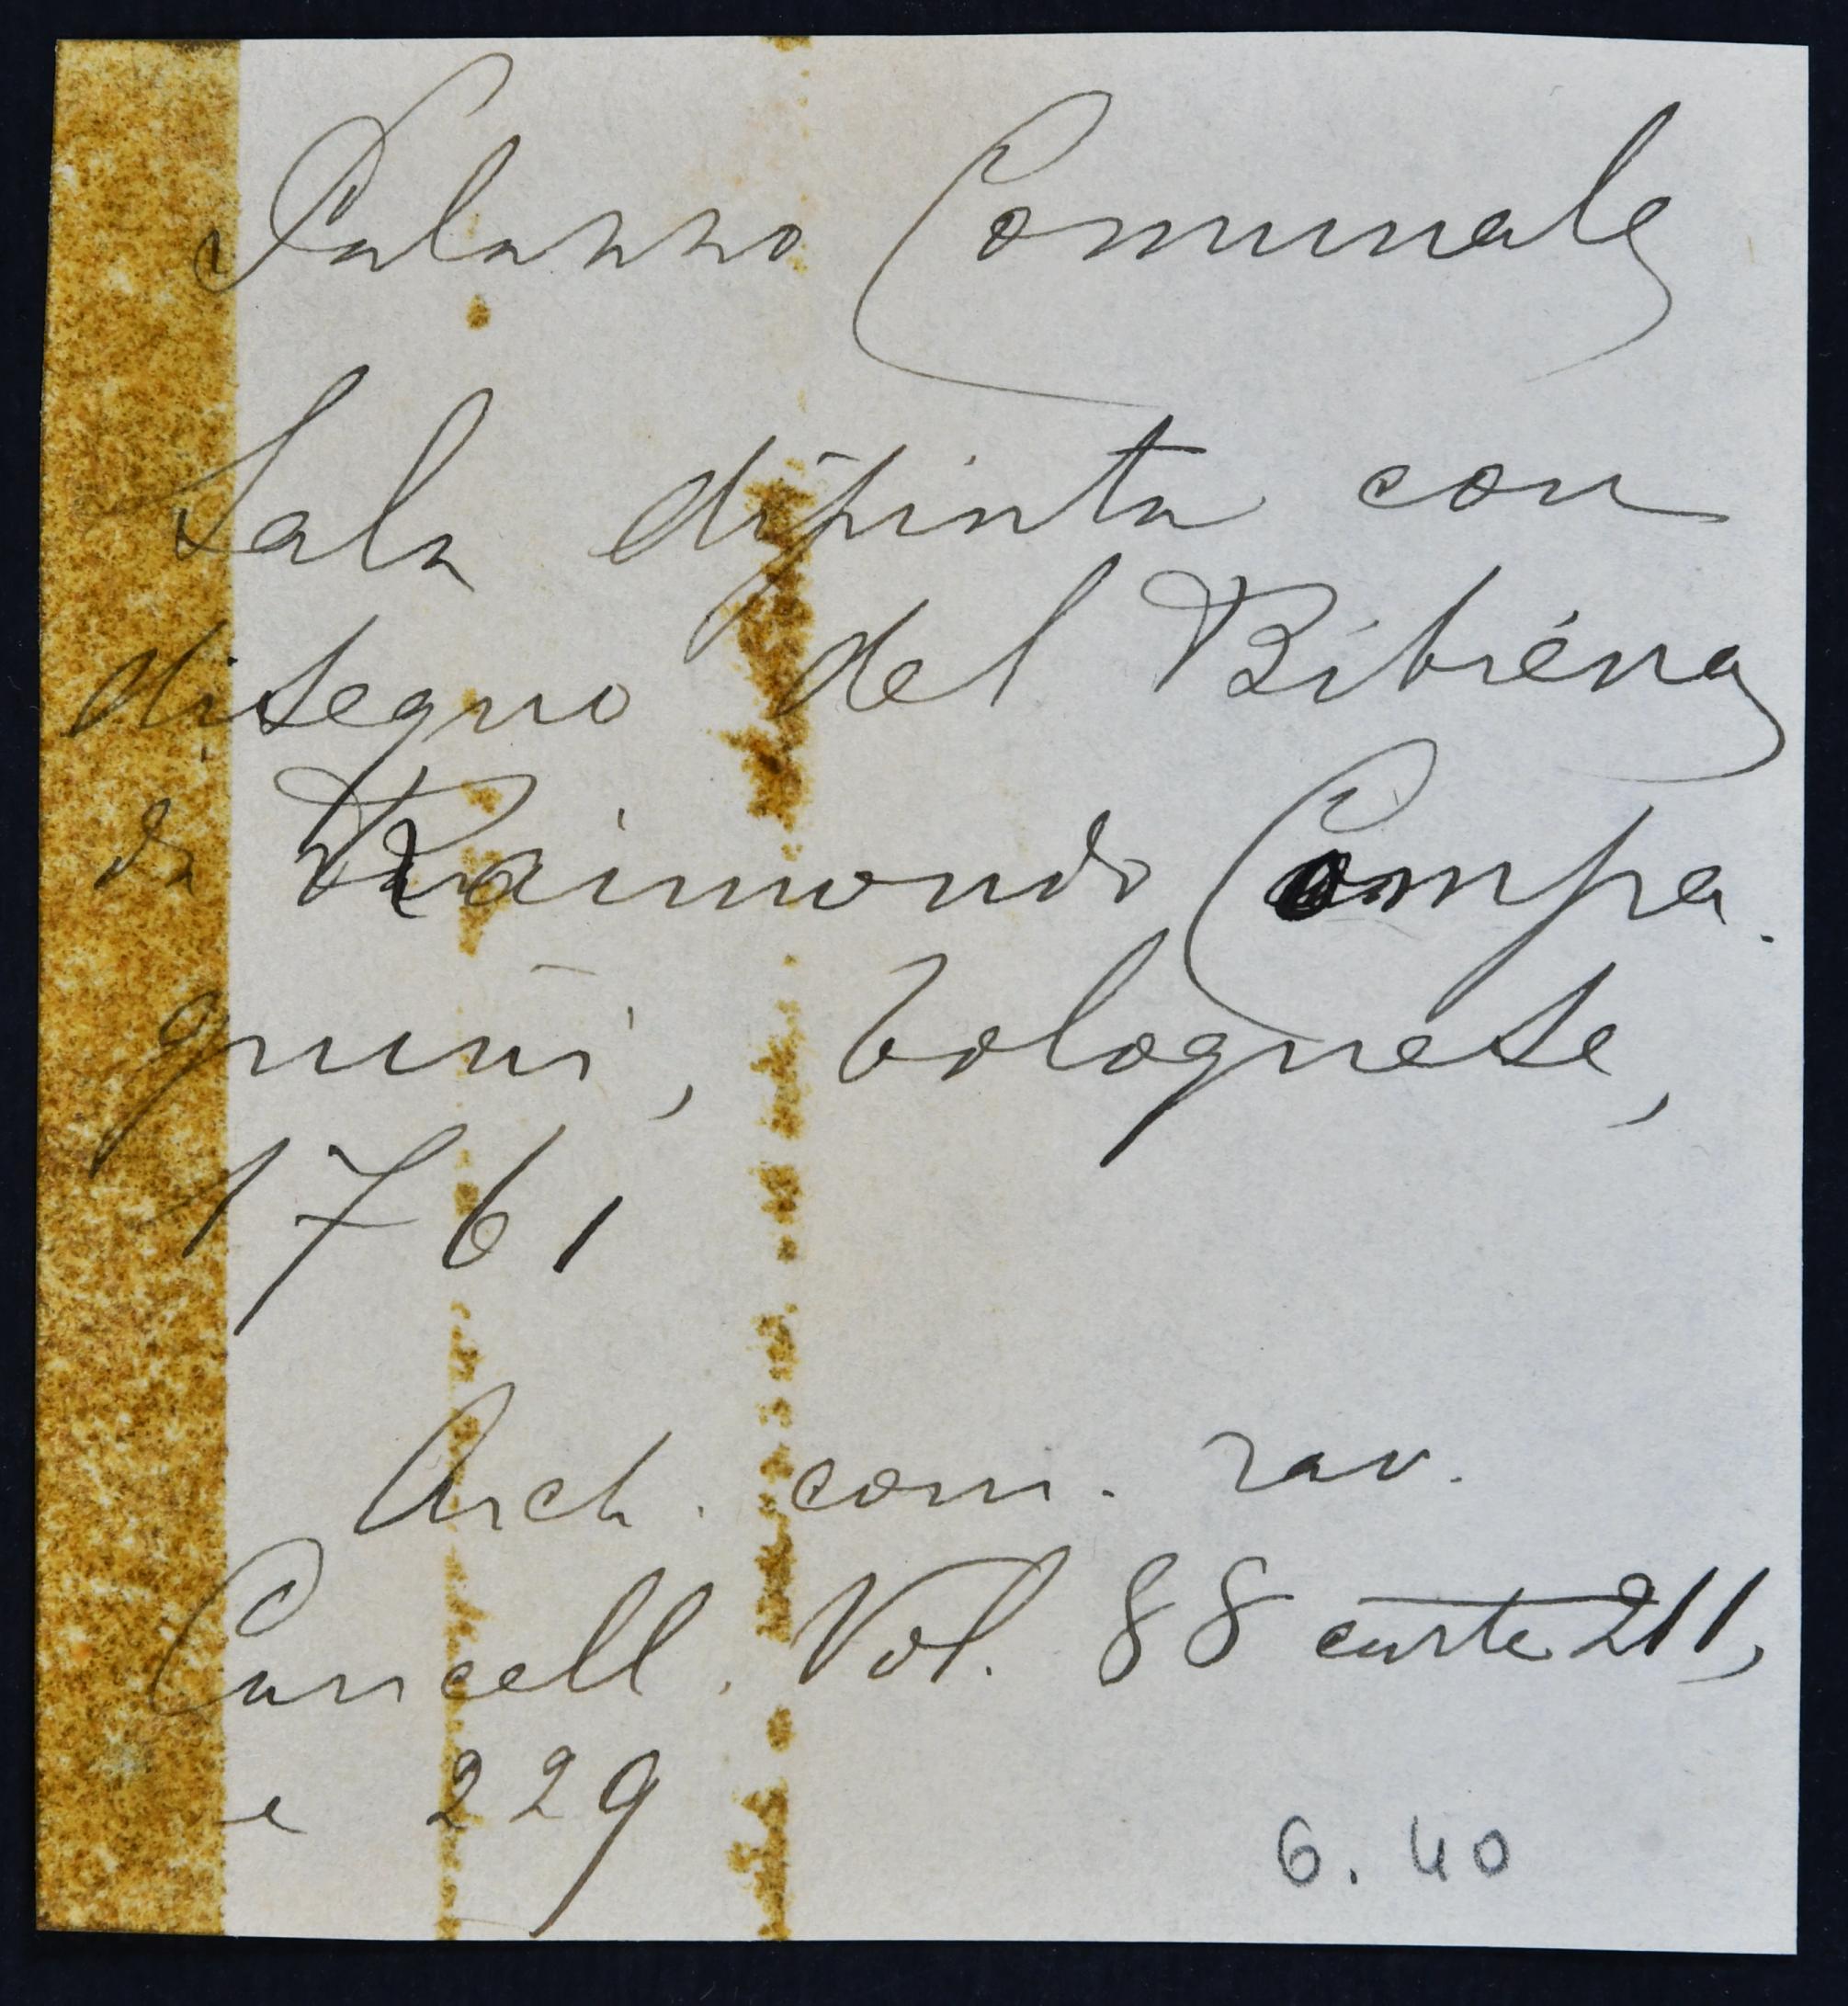 Palazzo Comunale
Sala dipinta con
disegno del Bibiéna
da Raimondo Compa-
gnini, bolognese,
1761
Arch. com. rav.
Cancell. Vol. 88 carte 211,
e 229
6. 40